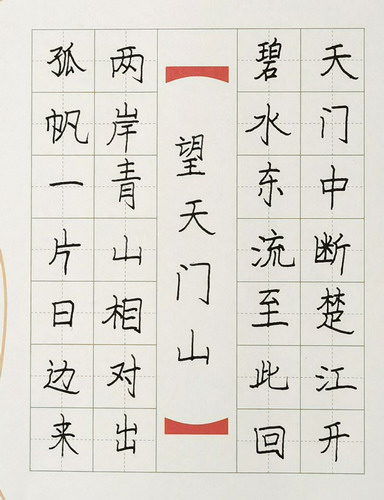 天门中断楚江开
碧水东流至此回
望天门山
两岸青山相对出
孤帆一片日边来